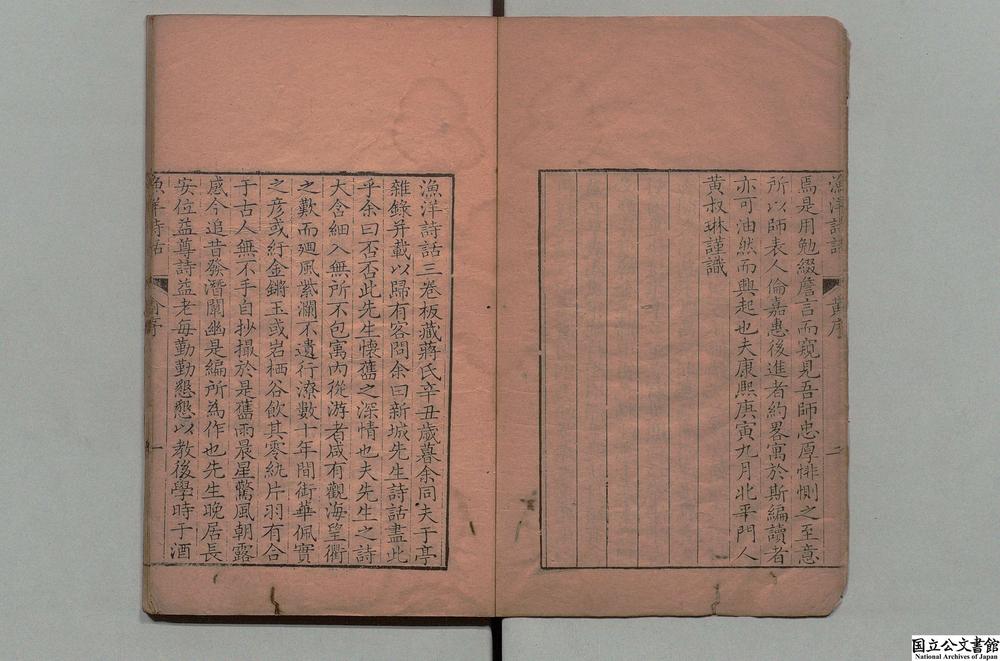 漁洋詩話
黃序
二
焉是用勉綴詹言而窺見吾師忠厚悱惻之至意
所以師表人倫嘉惠後進者約畧寓於斯編讀者
亦可油然而興起也夫康熙庚寅九月北平門人
黃叔琳謹識
漁洋詩話三卷板藏蔣氏辛丑歲暮余同夫于亭
雜錄并載以歸有客問余曰新城先生詩話盡此
乎余曰否否此先生懷舊之深情也夫先生之詩
大含細入無所不包寓內從游者咸有觀海望衢
之歎而廻風紫瀾不遺行潦數十年間銜華佩實
之彦或紆金鏘玉或岩栖谷飲其零紈片羽有合
于古人無不手自抄撮於是舊雨晨星驚風朝露
感今追昔發潛闡幽是編所為作也先生晚居長
安位益尊詩益老每勤勤懇懇以教後學時于酒
漁洋詩話
俞序
一
国立公文書館
National Archives of Japan